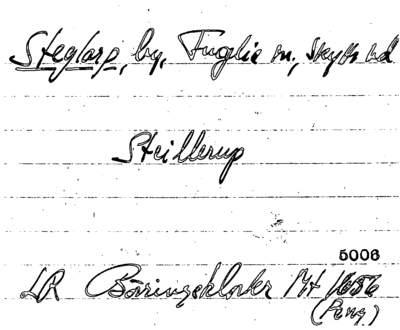 Steglarp, by, Fuglie sn, Skytts hd
Steillerup
5006
LR Börringekloster Mt 1656
(Peng.)